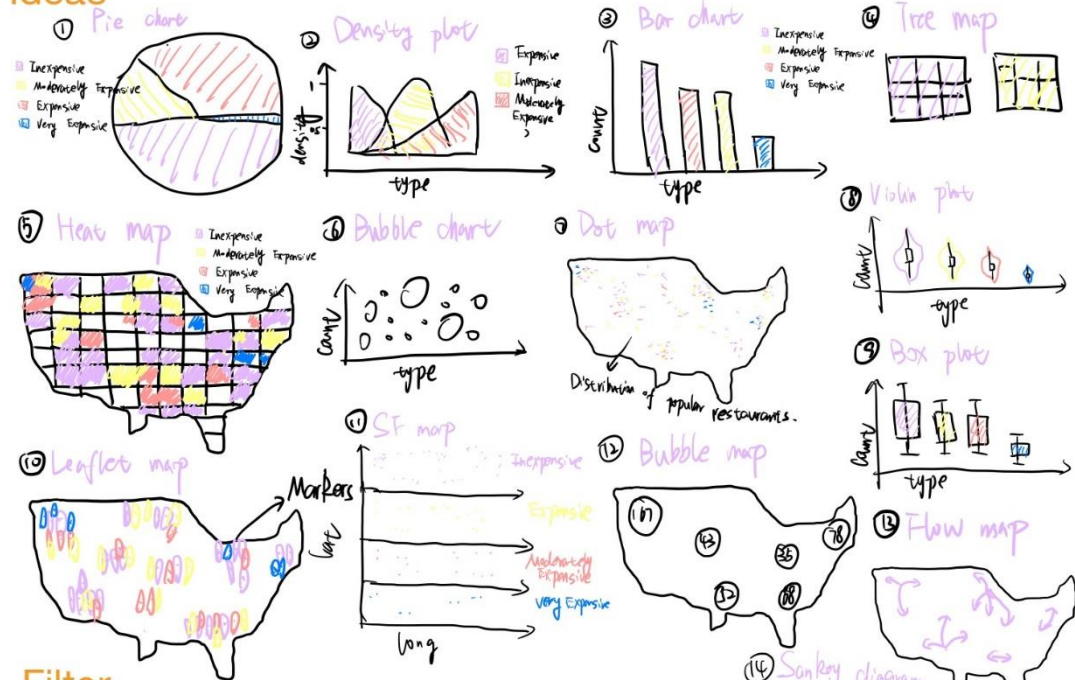 Ideas
① Pie chart
Inexpensive
Moderately Expensive
Expensive
Very Expensive
② Density plot
Expensive
Inexpensive
Moderately
Expensive
density
type
③ Bar chart
Inexpensive
Moderately Expensive
Expensive
Very Expensive
count
type
④ Tree map
⑤ Heat map
Inexpensive
Moderately Expensive
Expensive
Very Expensive
⑥ Bubble chart
count
type
⑦ Dot map
Distribution of popular restaurants.
⑧ Violin plot
count
type
⑨ Box plot
count
type
⑩ Leaflet map
Markers
⑪ SF map
Inexpensive
Expensive
Moderately
Expensive
Very Expensive
Lat
Long
⑫ Bubble map
107
43
35
78
52
88
⑬ Flow map
⑭ Sankey diagram
Filter